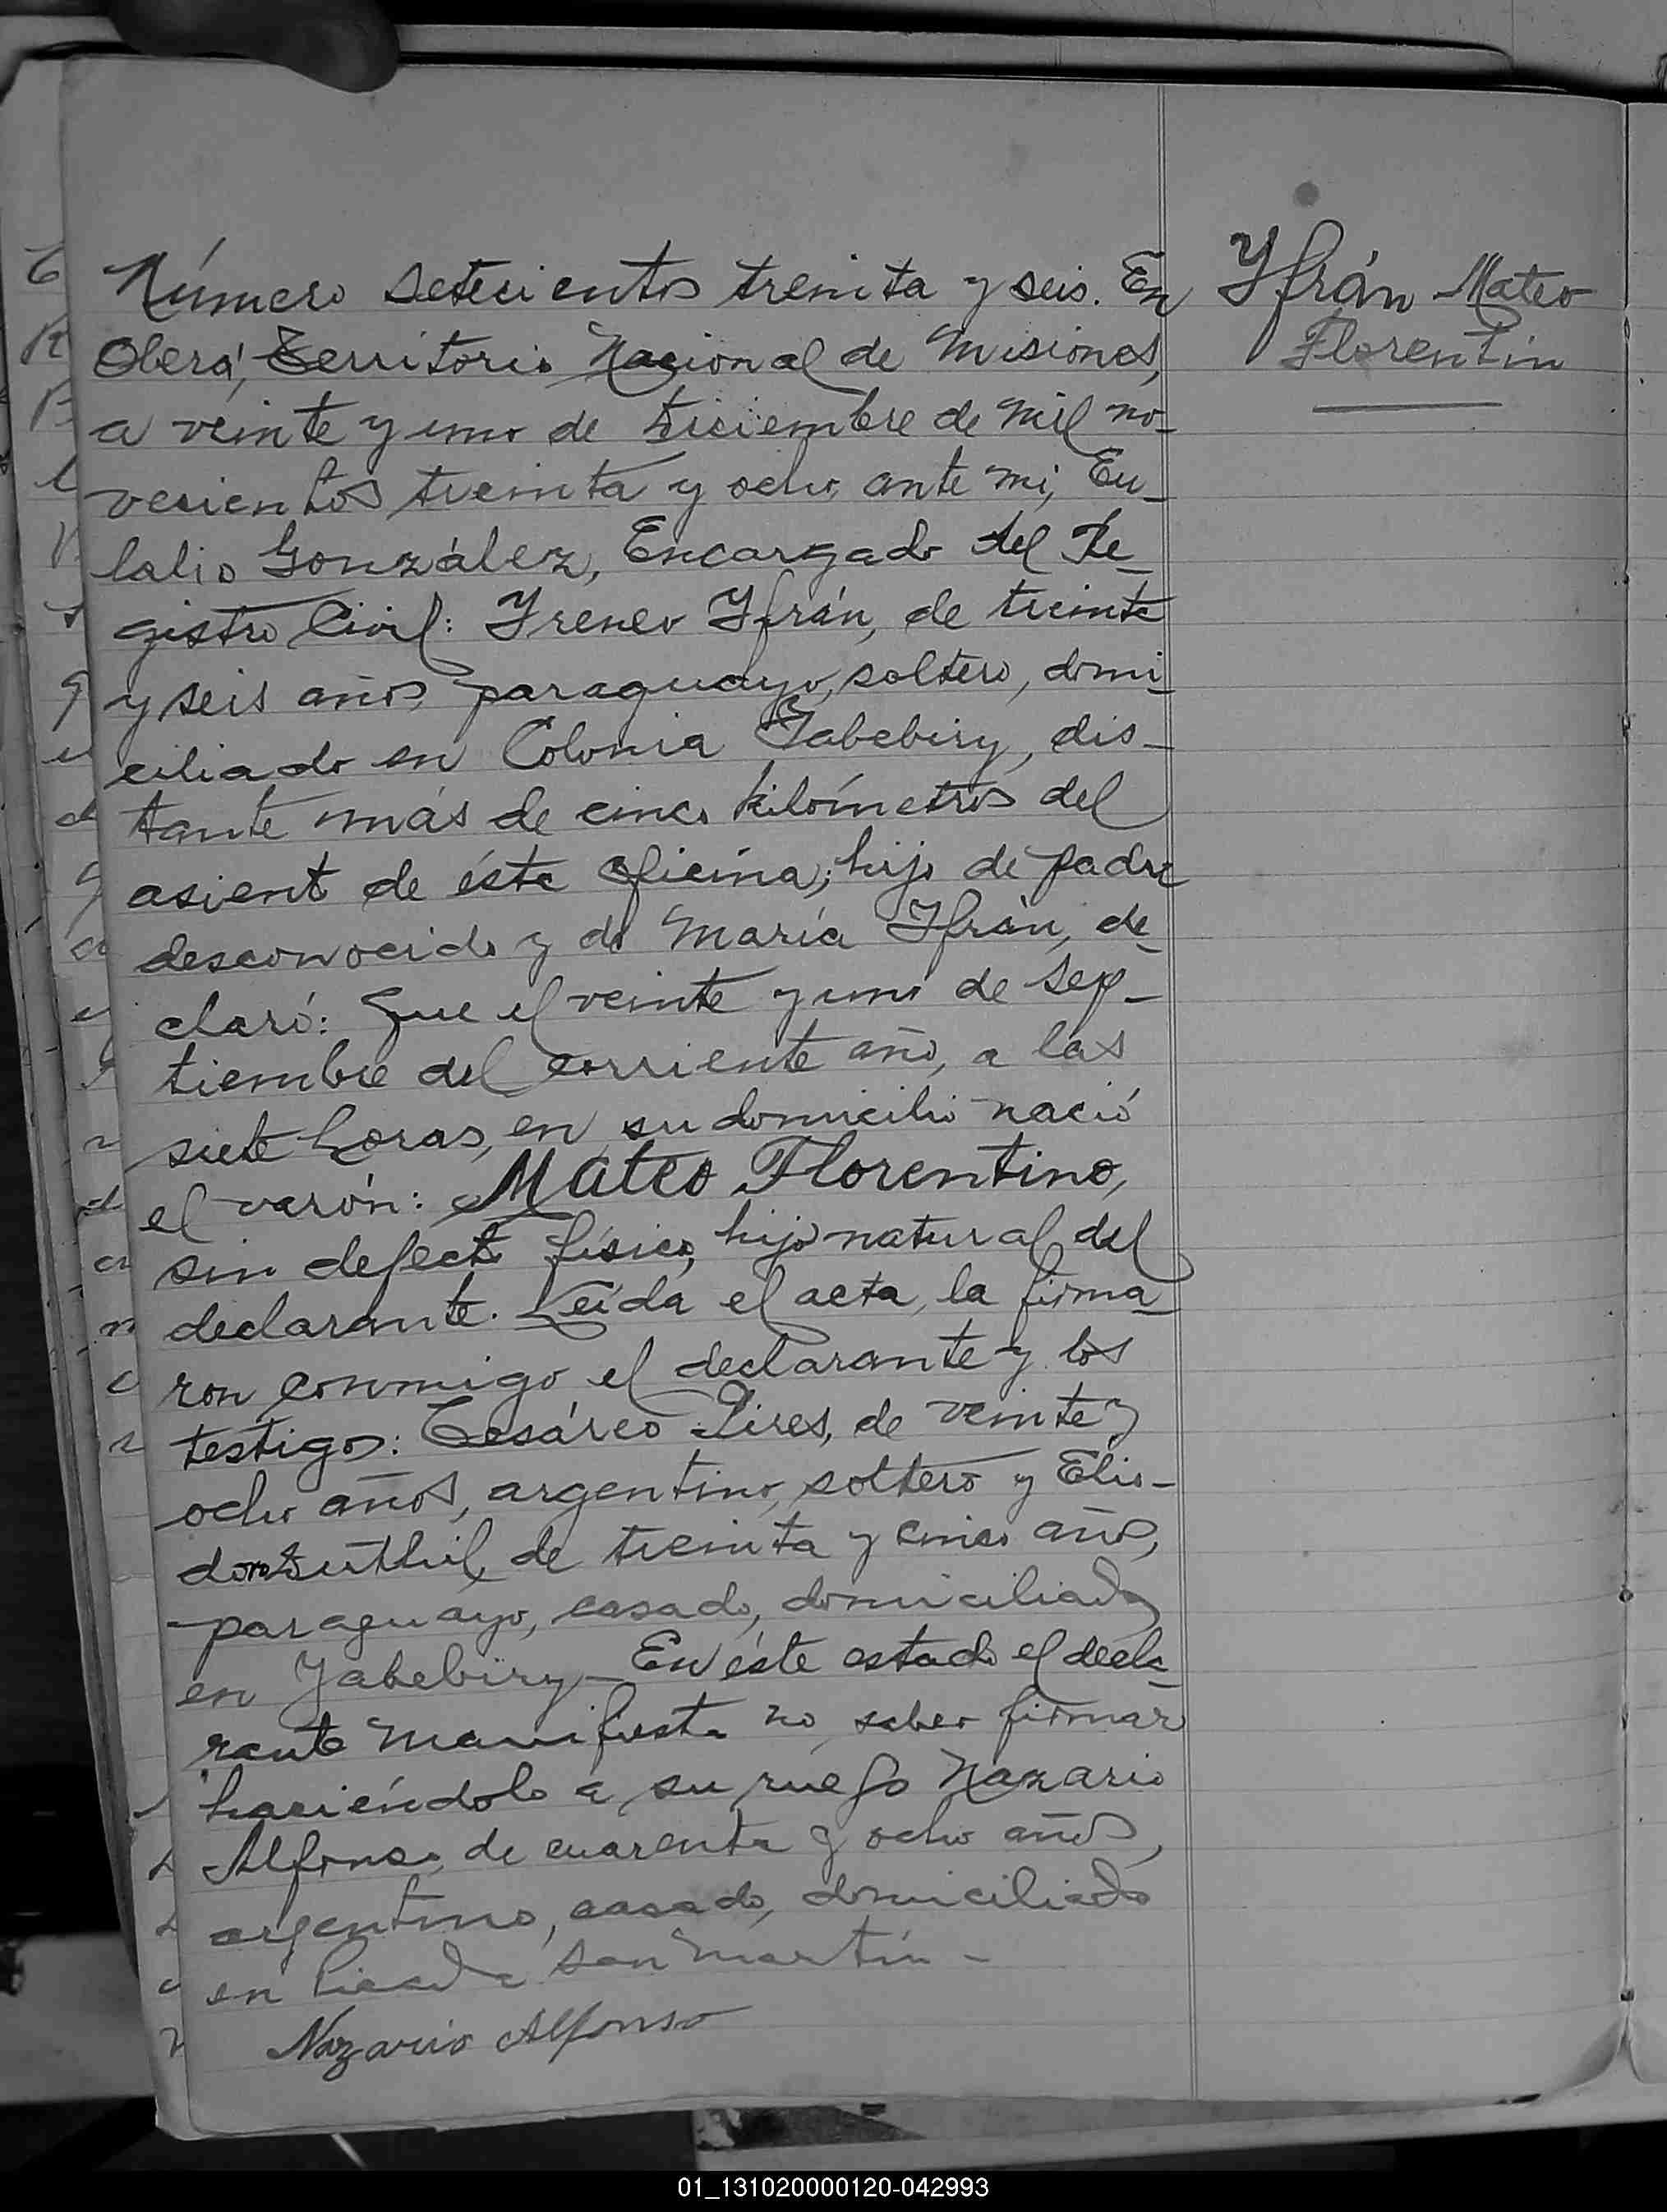 Número setecientos treinta y seis. En
Oberá, Territorio Nacional de Misiones,
a veinte y uno de diciembre de mil no-
vecientos treinta y ocho, ante mi, Eu-
lalio González, Encargado del Re-
gistro Civil: Yreneo Yfrán, de treinta
y seis años, paraguayo, soltero, domi-
ciliado en Colonia Yabebiry, dis-
tante más de cinco kilómetros del
asiento de ésta oficina, hijo de padre
desconocido y de María Yfrán, de-
claró: Que el veinte y uno de sep-
tiembre del corriente año, a las
siete horas, en su domicilio nació
el varón: Mateo Florentino,
sin defecto físico, hijo natural del
declarante. Leída el acta, la firma-
ron conmigo el declarante y los
testigos: Cesáreo Pires, de veinte y
ocho años, argentino, soltero y Elio-
doro de treinta y cinco años,
paraguayo, casado, domiciliado
en Yabebiry.- En éste estado el decla-
rante manifiesta no saber firmar
haciéndolo a su ruego Nazario
Alfonso, de cuarenta y ocho años,
argentino, casado, domiciliado
en Picada San Martín -
Nazario Alfonso
Yfrán Mateo
Florentin
01_131020000120-042993